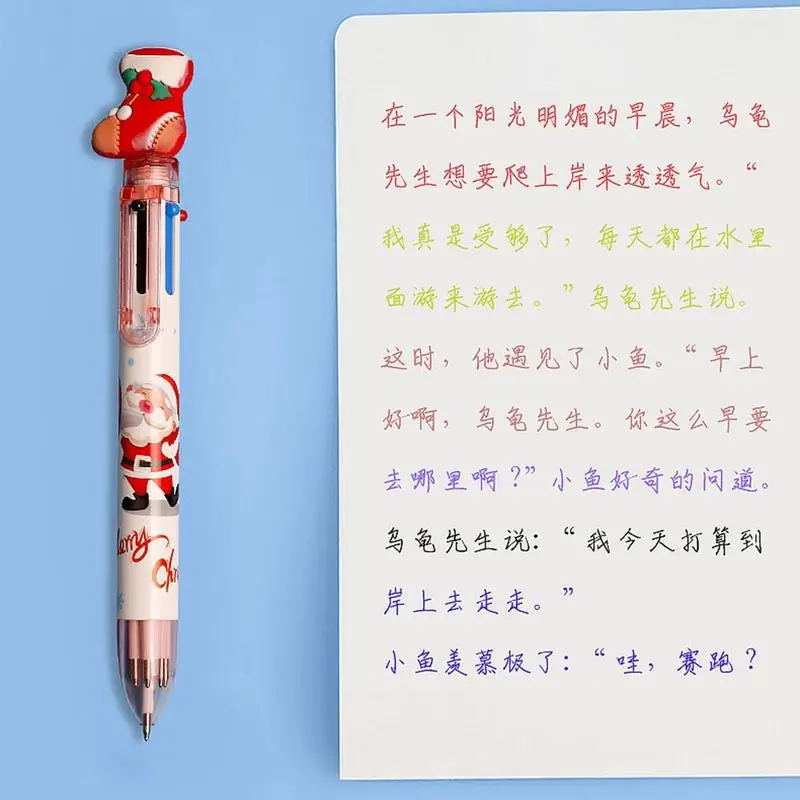 在一个阳光明媚的早晨，乌龟
先生想要爬上岸来透透气。“
我真是受够了，每天都在水里
面游来游去。”乌龟先生说。
这时，他遇见了小鱼。“早上
好啊，乌龟先生。你这么早要
去哪里啊？”小鱼好奇的问道。
乌龟先生说：“我今天打算到
岸上去走走。”
小鱼羡慕极了：“哇，赛跑？
Merry
Chr